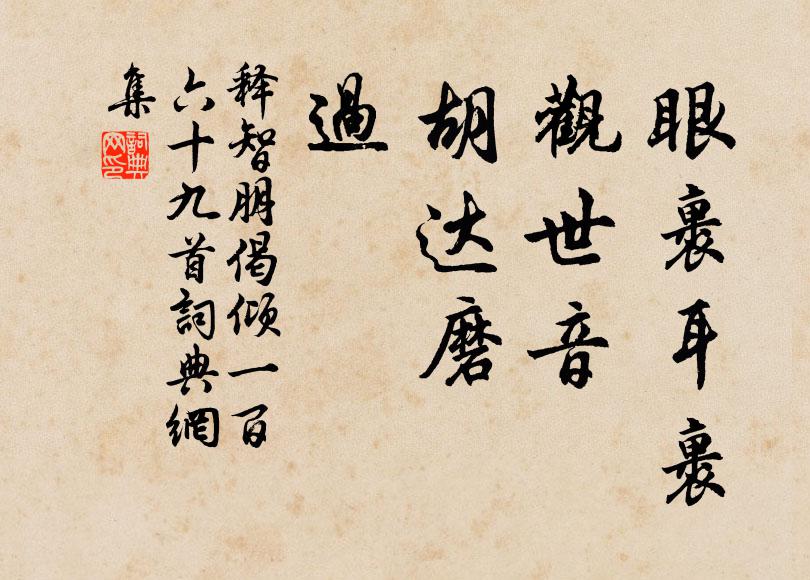 眼裏耳裏
觀世音
胡达磨
過
释智朋偈倾一百
六十九首詞典網
集
詞典网印